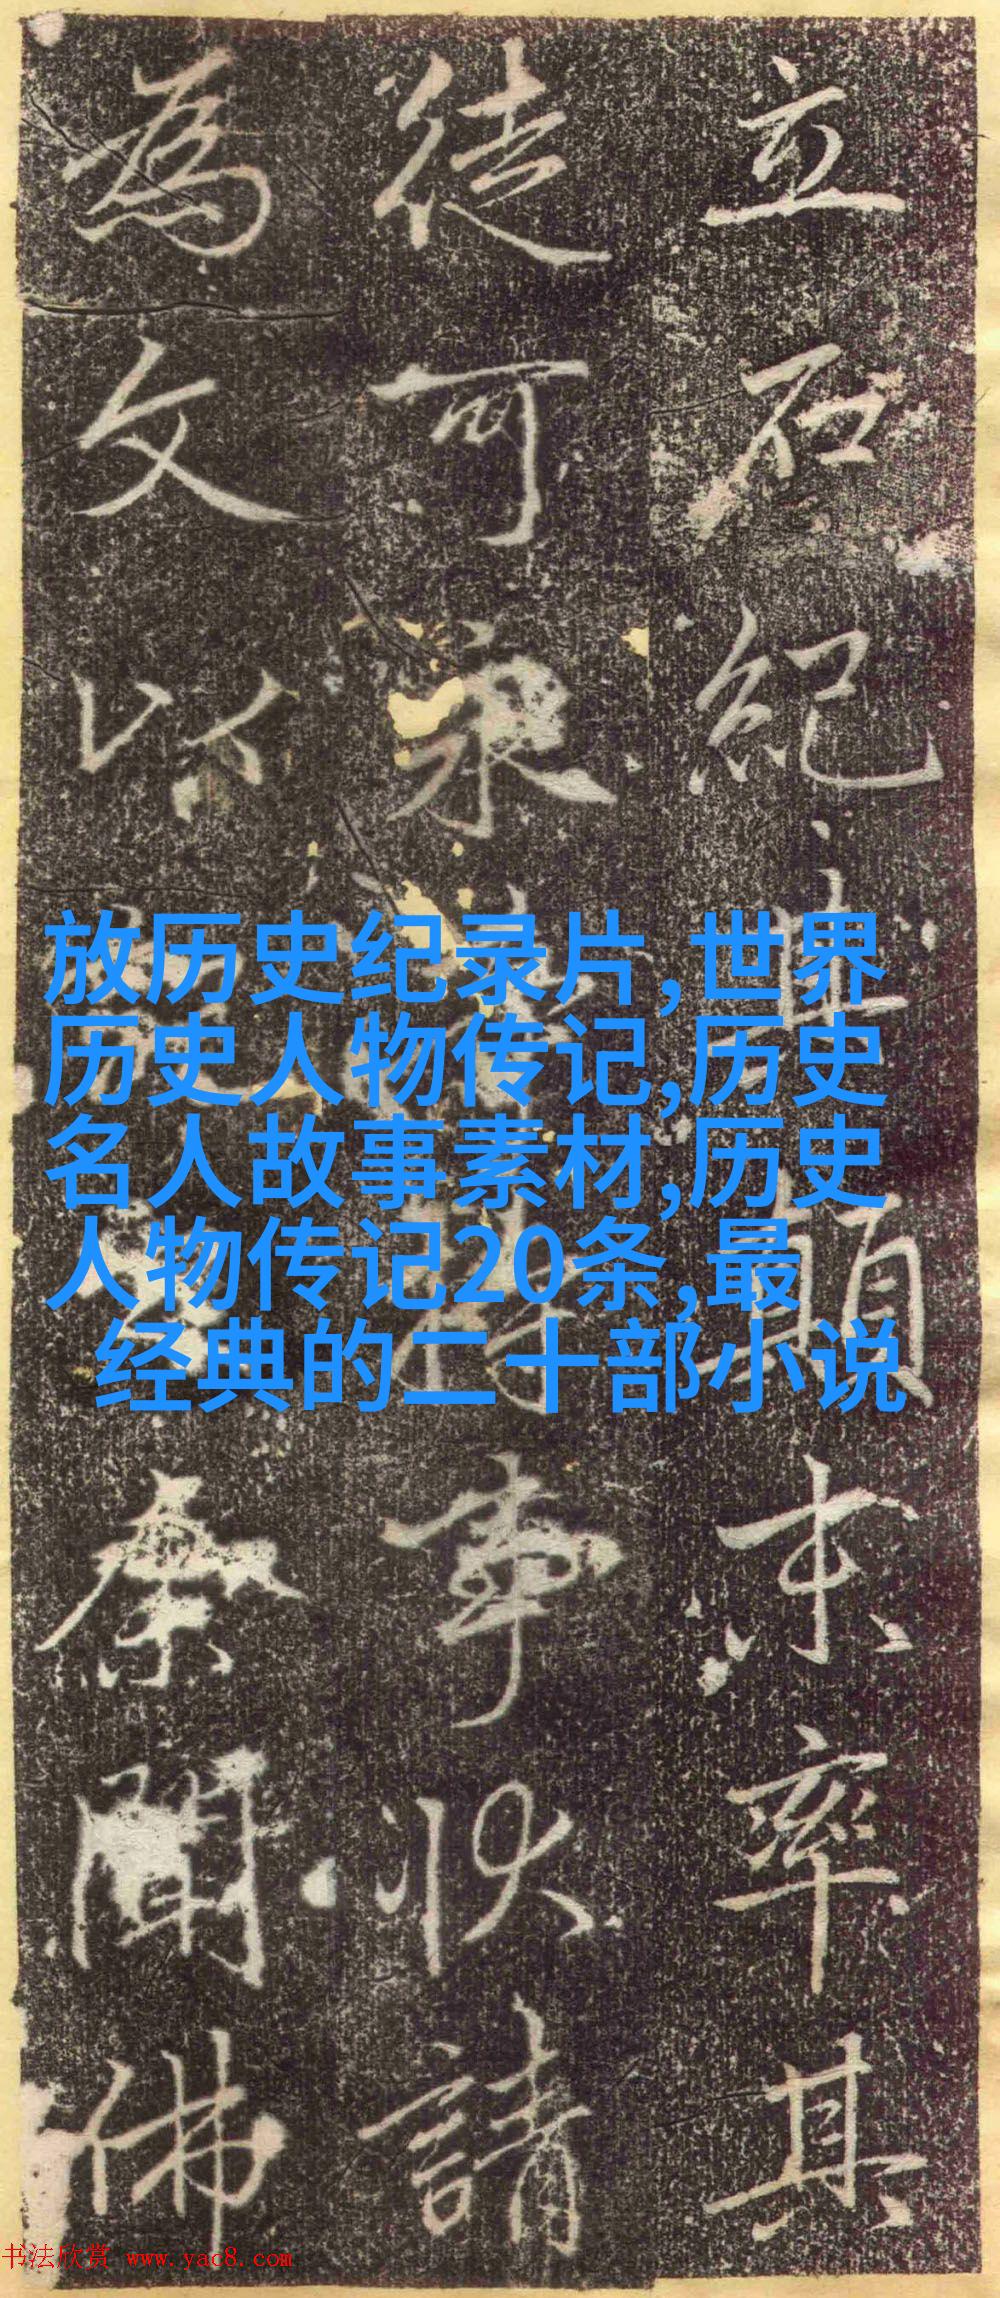 立石紀其顛末率其
徒可永持事狀請
為文以聞佛
放历史纪录片,世界
历史人物传记,历史
名人故事素材,历史
人物传记20条,最
经典的二十部小说
书法欣赏 www.yac8.com